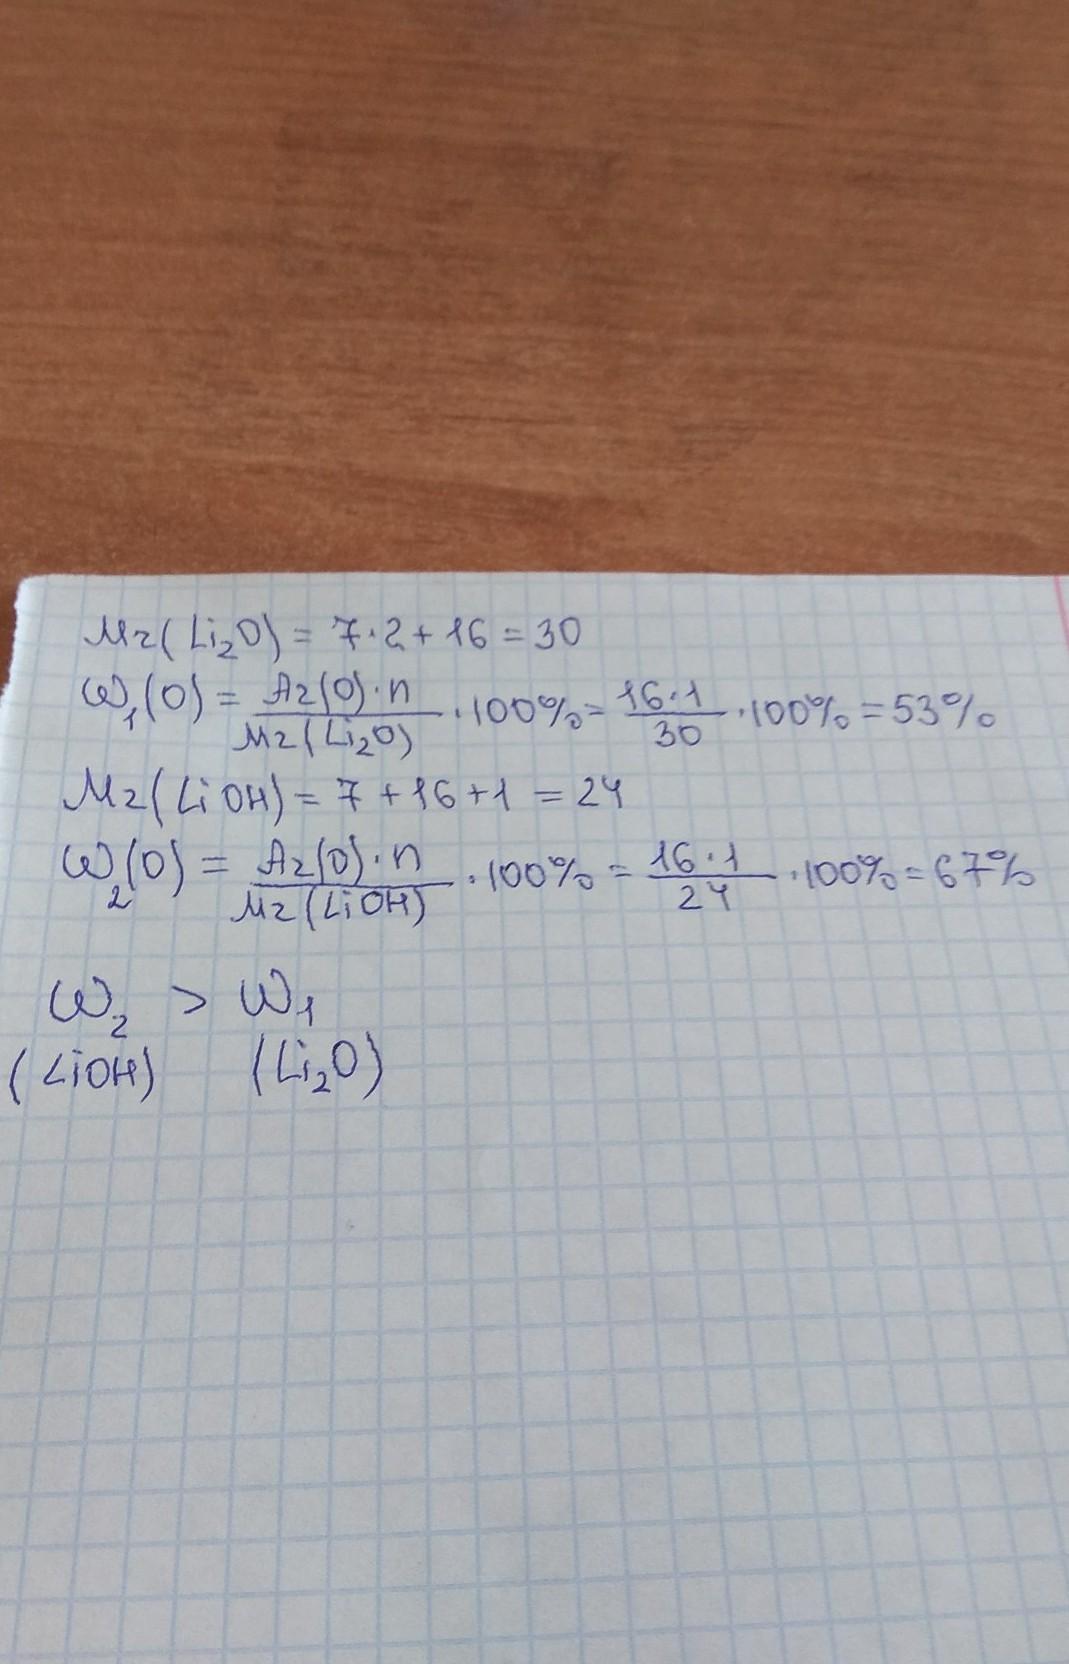 Mr(Li₂O) = 7·2+16=30
ω₁(O) = Ar(O)·n / Mr(Li₂O) ·100%= 16·1 / 30 ·100%=53%
Mr(LiOH)= 7+16+1 =24
ω₂(O) = Ar(O)·n / Mr(LiOH) ·100%= 16·1 / 24 ·100%=67%
ω₂ > ω₁
(LiOH) (Li₂O)